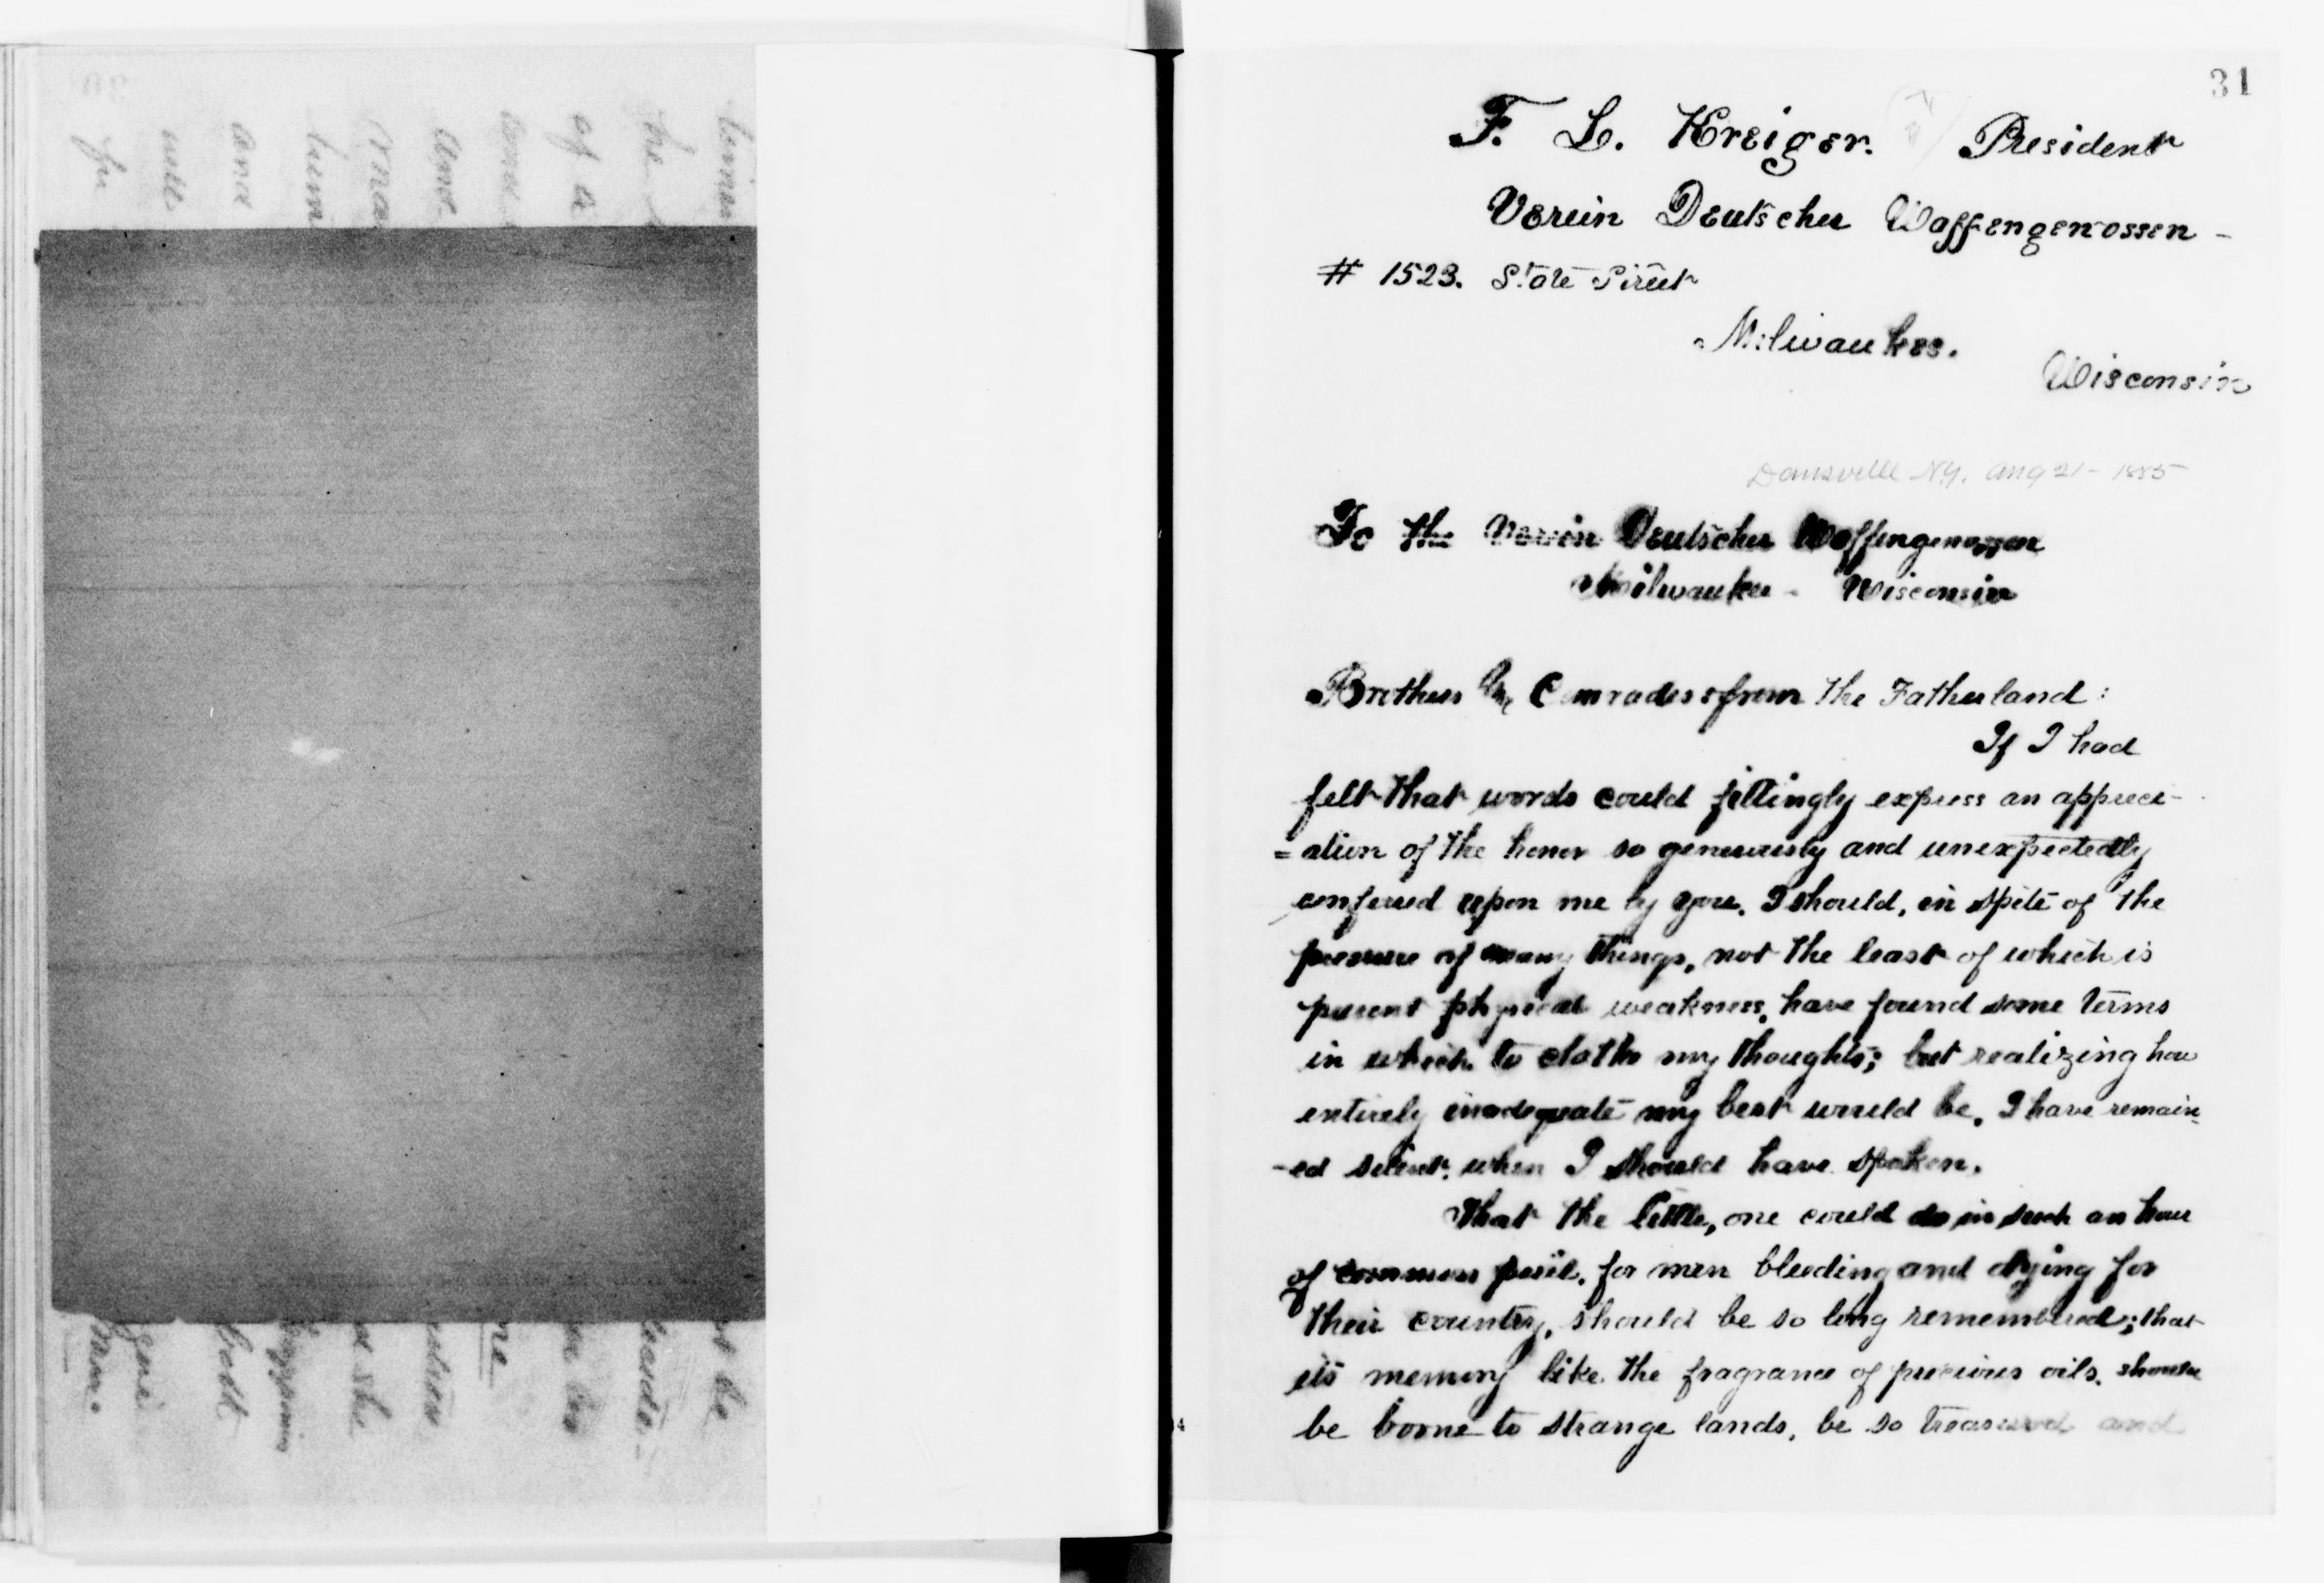 31
F. L. Kreiger. President
Verein Deutscher Waffengenossen -
# 1523. State Street
Milwaukee.
Wisconsin
Dansville NY. Aug 21 - 1885
To the Verein Deutscher Waffengenossen
Milwaukee - Wisconsin
Brothers & Comrades from the Fatherland:
If I had
felt that words could fittingly express an appreci-
=ation of the honor so generously and unexpectedly
conferred upon me by you, I should, in spite of the
pressure of many things, not the least of which is
present physical weakness, have found some terms
in which to clothe my thoughts; but realizing how
entirely inadequate my best would be, I have remain-
-ed silent, when I should have spoken.
That the little, one could do in such an hour
of common peril, for men bleeding and dying for
their country, should be so long remembered; that
its memory like the fragrance of precious oils, should
be borne to strange lands, be so treasured and